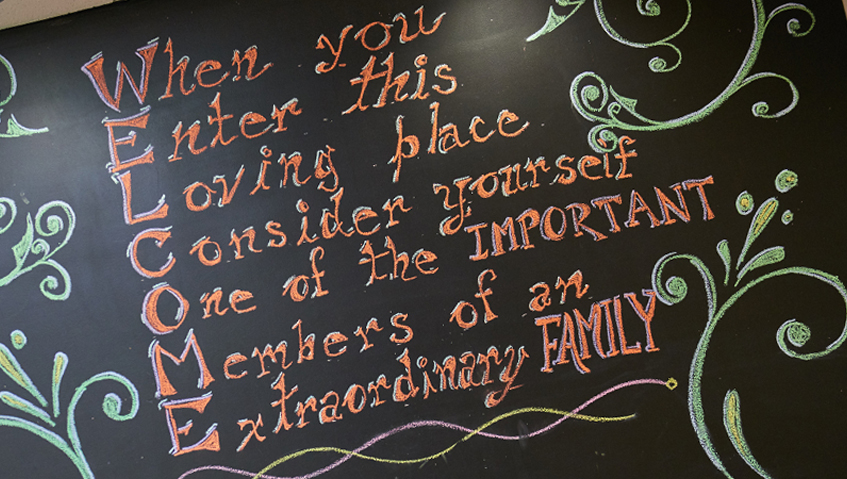 When you
Enter this
Loving place
Consider yourself
One of the IMPORTANT
Members of an
Extraordinary FAMILY